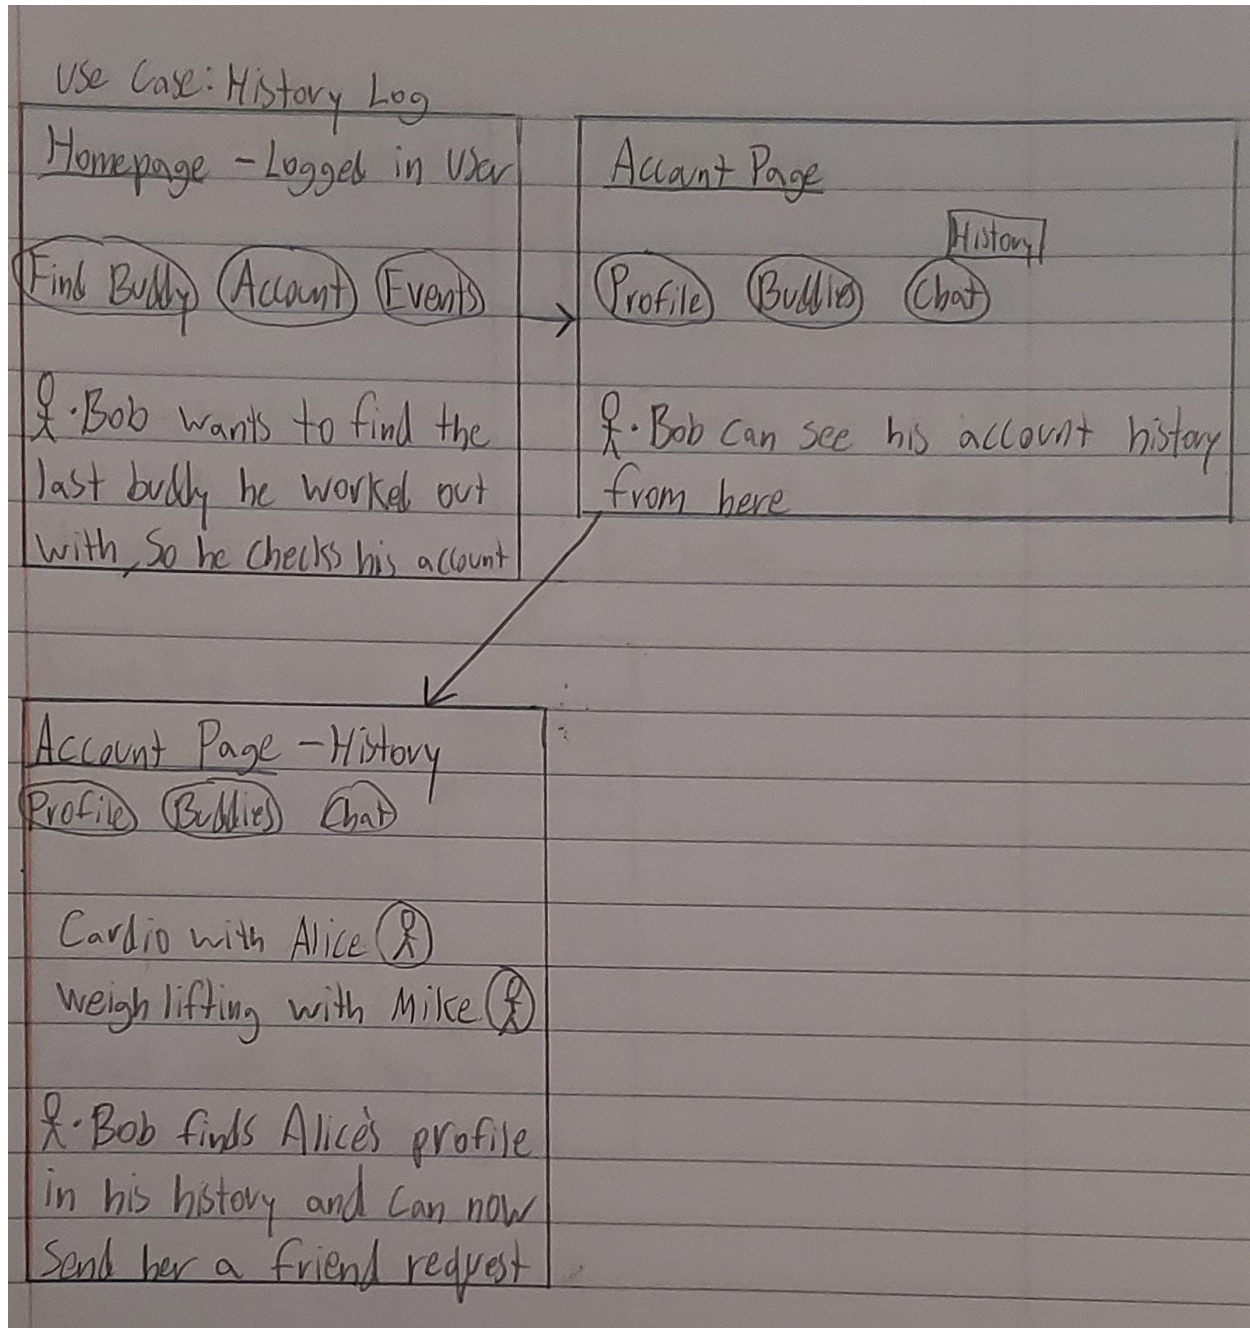 Use Case: History Log
Homepage - Logged in User
Find Buddy Account Events
Bob wants to find the
last buddy he worked out
with, So he checks his account
Account Page
History
Profile Buddies Chat
Bob can see his account history
from here
Account Page - History
Profile Buddies Chat
Cardio with Alice
Weigh lifting with Mike
Bob finds Alice's profile
in his history and can now
send her a friend request